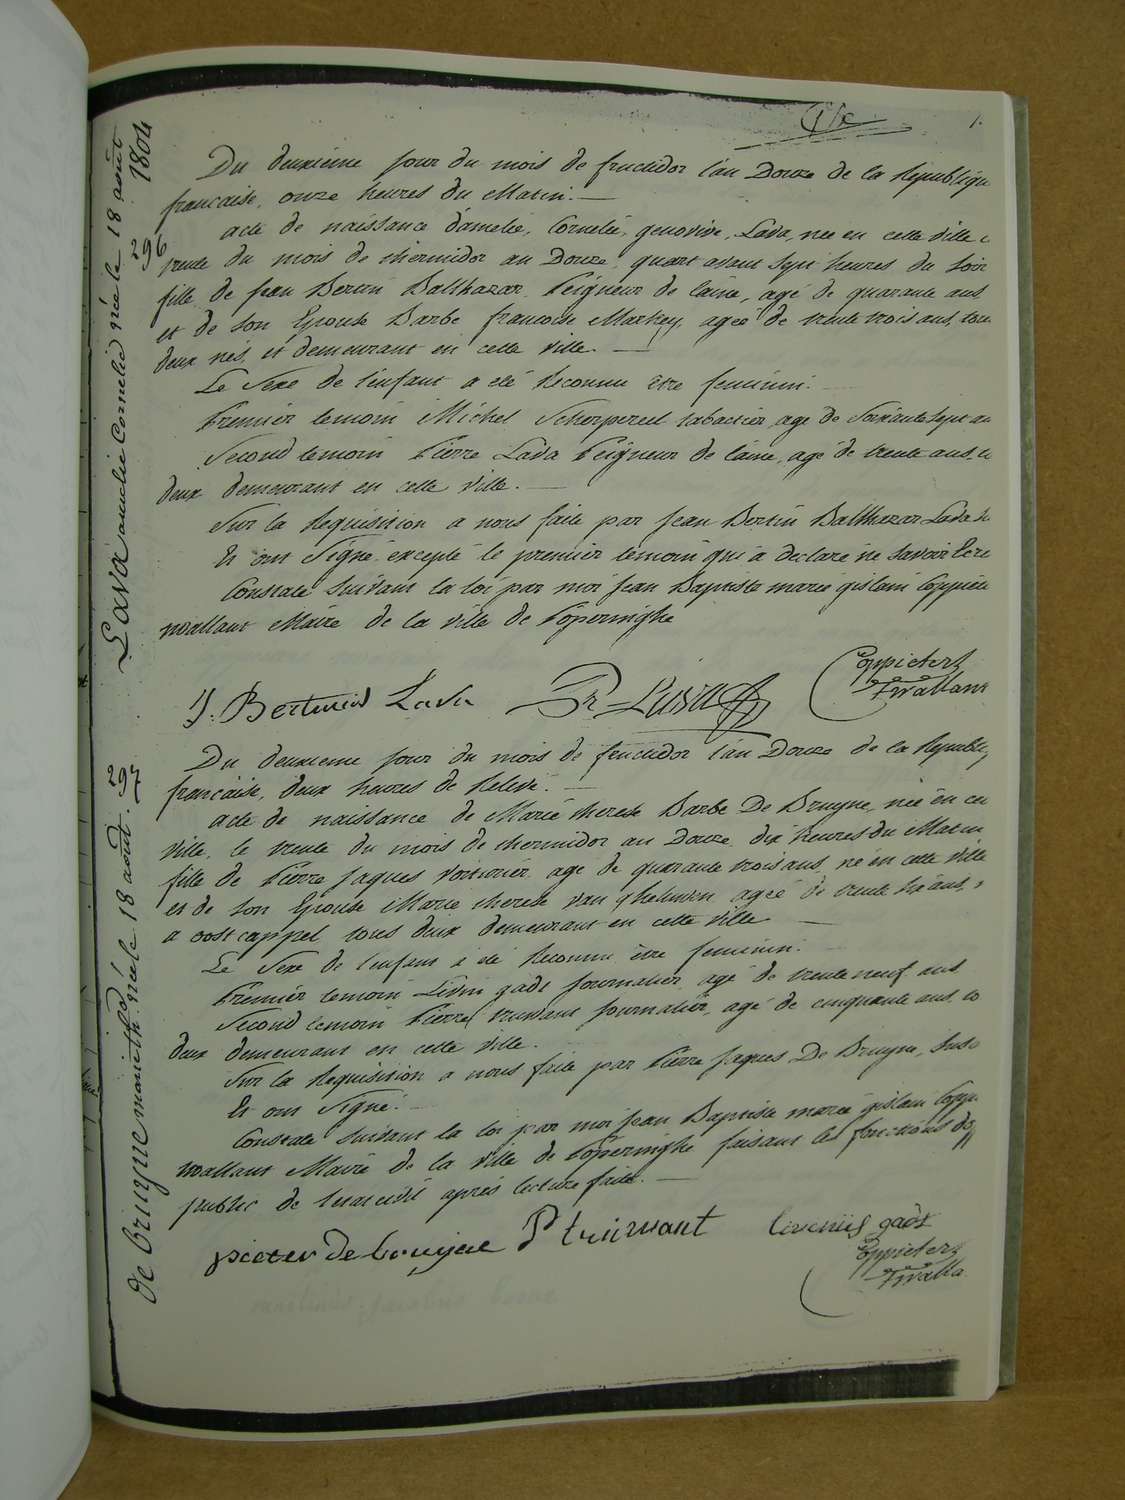 Du deuxième jour du mois de fructidor l'an Douze de la Republiqu
francaise, onze heures du Matin. —
296
acte de naissance d'amelie, Cornelie, genovive, Lava, née en cette ville
trente du mois de thermidor an Douze, quart avant sept heures du soir
fille de jean Bertin Balthazar Peigneur de laine, agé de quarante ans
et de son Epouse Barbe francoise Markey, agée de trente trois ans, tou
deux nés, et demeurant en cette ville. —
Le Sexe de l'enfant a eté Reconnu être feminin.
Premier temoin Michel Scherpereel tabactier agé de Soixante sept an
Second temoin Pierre Lava Peigneur de laine, agé de trente ans, t
deux demeurant en cette ville. —
Sur la Requisition a nous faite par jean Bertin Balthazar Lava
Et ont Signé excepté le premier temoin qui a declaré ne savoir Ecre
Constaté Suivant la loi par moi jean Baptiste marie gislain Coppiete
wallant Maire de la ville de Poperinghe
Lava amelie Cornelie née le 18 août 1804
J: Bertinus Lava Pr. Lava Coppieters
Twallant
Du deuxieme jour du mois de fructidor l'an Douze de la Republi
française, deux heures de Relevé. —
297
acte de naissance de Marie therese Barbe De Bruyne, née en cet
ville, le trente du mois de thermidor an Douze, dix heures du Matin
fille de Pierre jaques Voiturier, agé de quarante trois ans, né en cette ville
et de son Epouse Marie therese van ghelwein, agée de trente six ans,
a oost cappel tous deux demeurant en cette ville —
Le Sexe de l'enfant a eté Reconnu être feminin.
Premier temoin Livin gads journalier, agé de trente neuf ans
Second temoin Pierre truwant journalier, agé de cinquante ans, to
deux demeurant en cette ville.
Sur la Requisition a nous faite par Pierre jaques De Bruyne, susd
Et ont Signé.
Constaté suivant la loi par moi jean Baptiste marie gislain Coppi
wallant Maire de la ville de Poperinghe faisant les fonctions d'o
public de l'etat civil après lecture faite. —
de bruyne marie th. née le 18 août.
pieter de bruyne P truwant livenus gads
Coppieters
Twalla